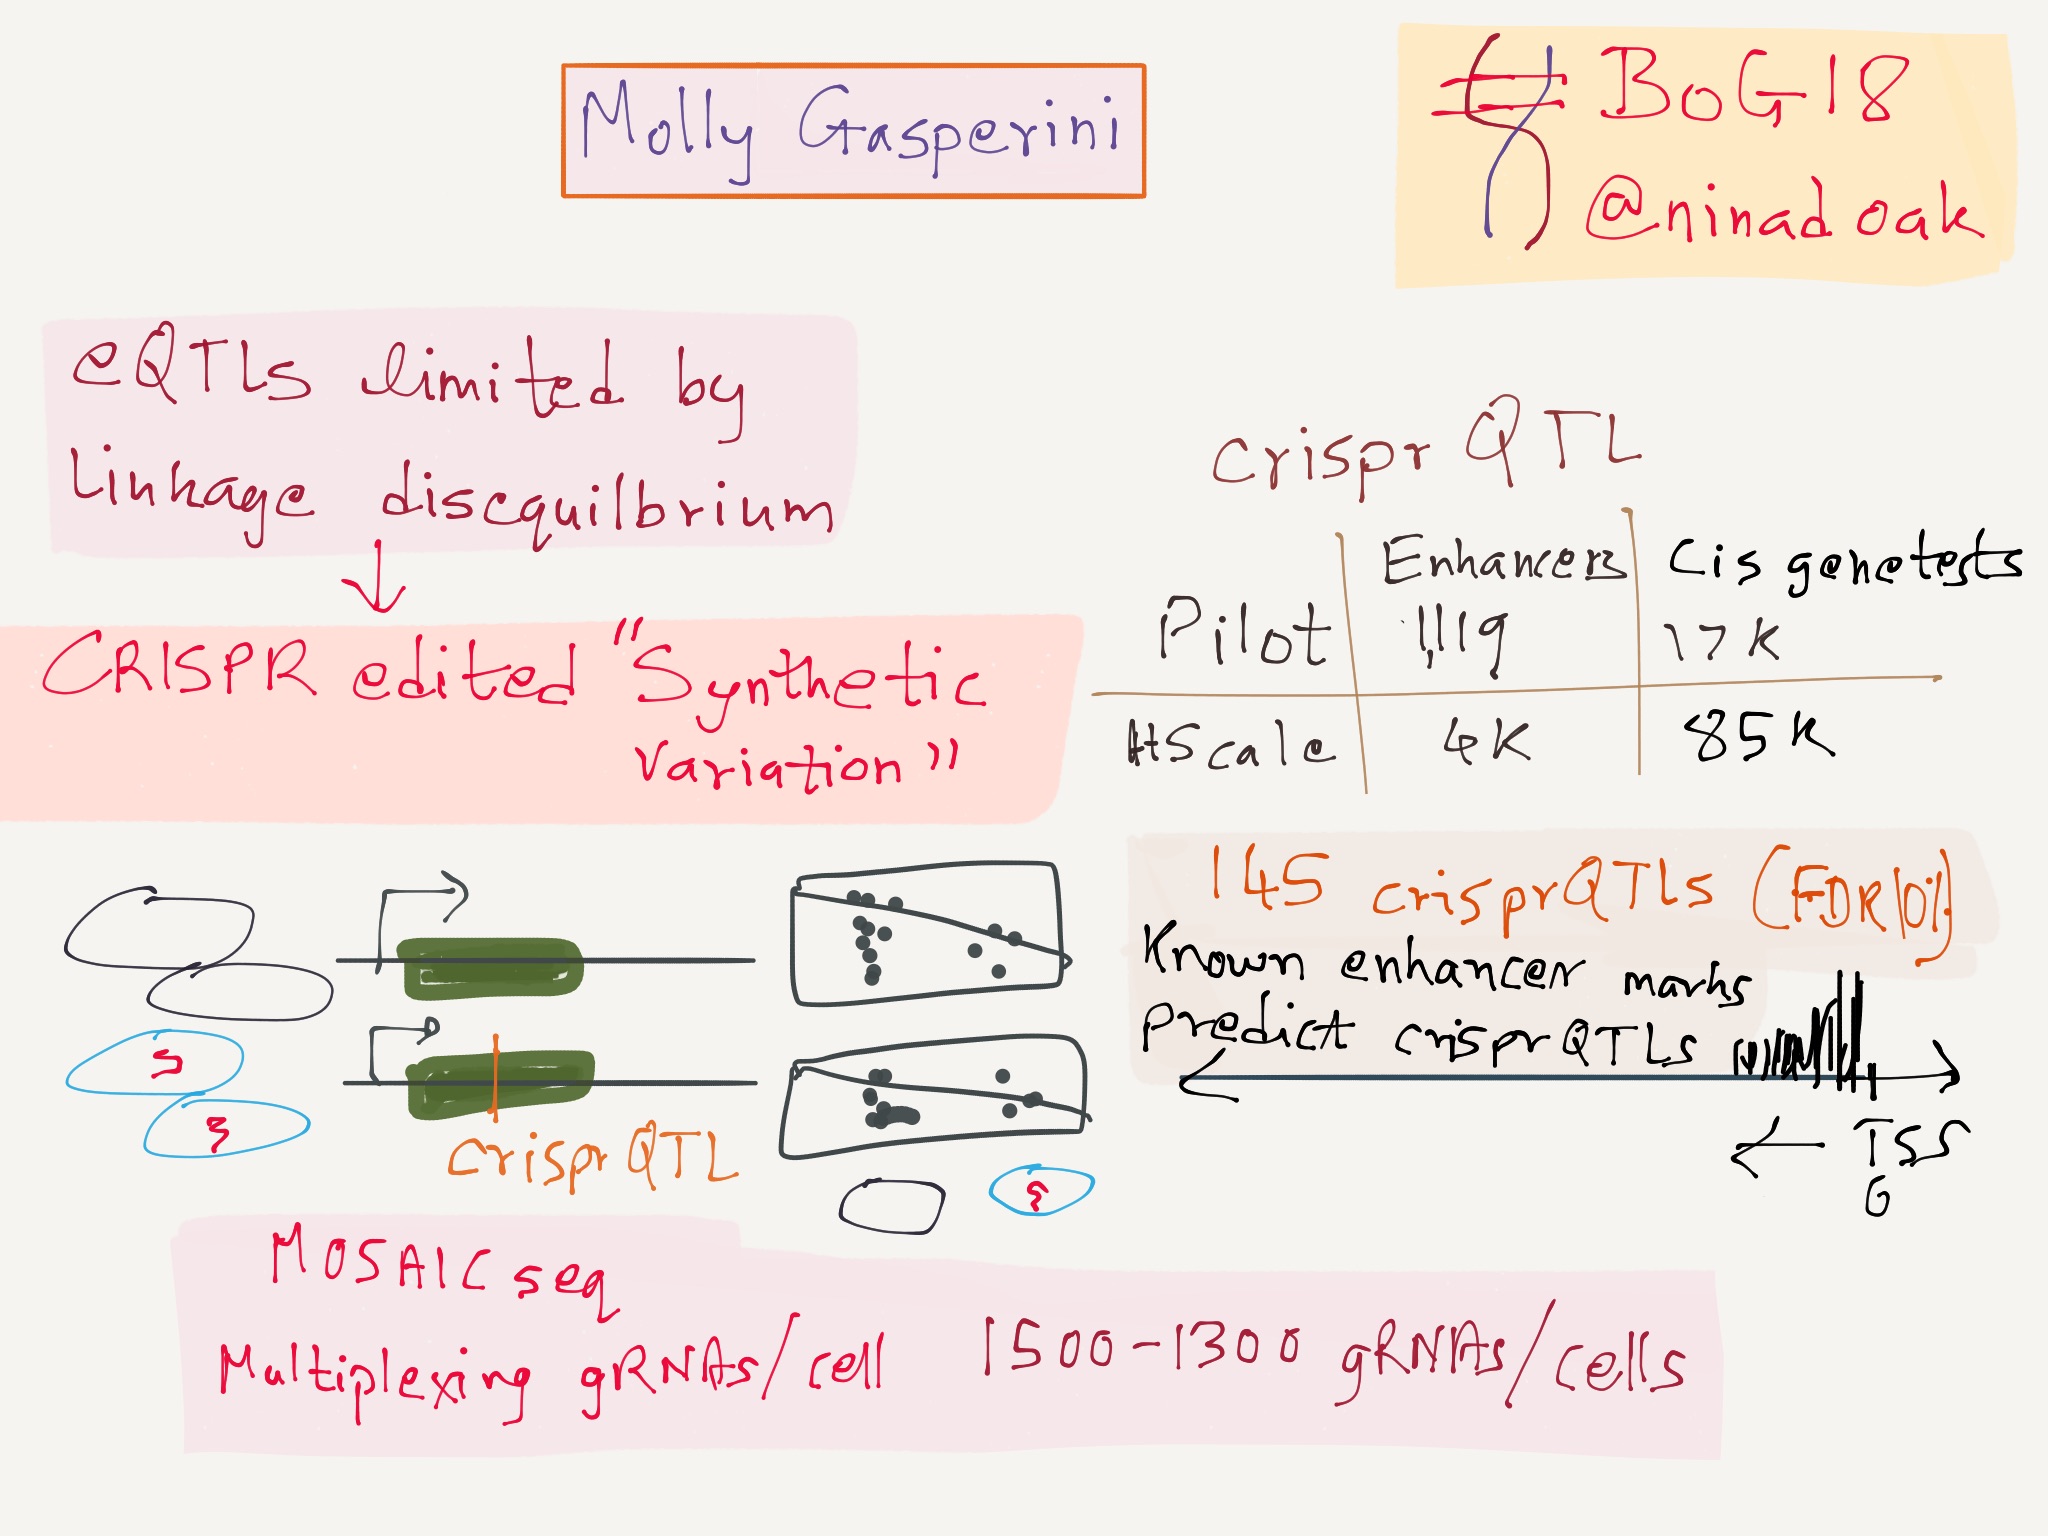 Molly Gasperini
# BoG18
@ninadoak
eQTLs limited by
Linkage disequilbrium
CRISPR edited "Synthetic
variation"
crispr QTL
Enhancers Cis gene tests
Pilot 1,119 17K
AtScale 4K 85K
145 crisprQTLs (FDR 10%)
Known enhancer marks
predict crisprQTLs
TSS
crispr QTL
MOSAIC seq
Multiplexing gRNAs/cell 1500-1300 gRNAs/cells